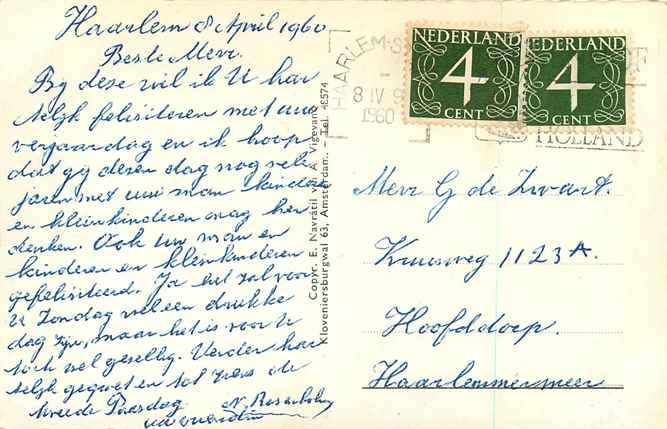 Haarlem 8 April 1960
Beste Mevr.
By deze wil ik U har
telyk felisiteren met uw
verjaardag en ik hoop
dat gy deren dag nog vele
jaren met uw man kinder
en kleinkinderen mag her
denken. Ook uw man en
kinderen en kleinkinderen
gefelisiteerd. Ja het zal voor
U Zondag wel een drukke
dag zyn, maar het is voor U
toch wel gesellig. Verder har
telyk gegroet en tot ziens de
tweede Paasdag
Copyr. E. Navrátil van A. Vigevano
Kloveniersburgwal 63, Amsterdam. - Tel. 48574
HAARLEM-S
8 IV
1960
HOLLAND
NEDERLAND
4
CENT
NEDERLAND
4
CENT
Mevr G de Zwart.
Kruisweg 1123A.
Hoofddorp.
Haarlemmermeer